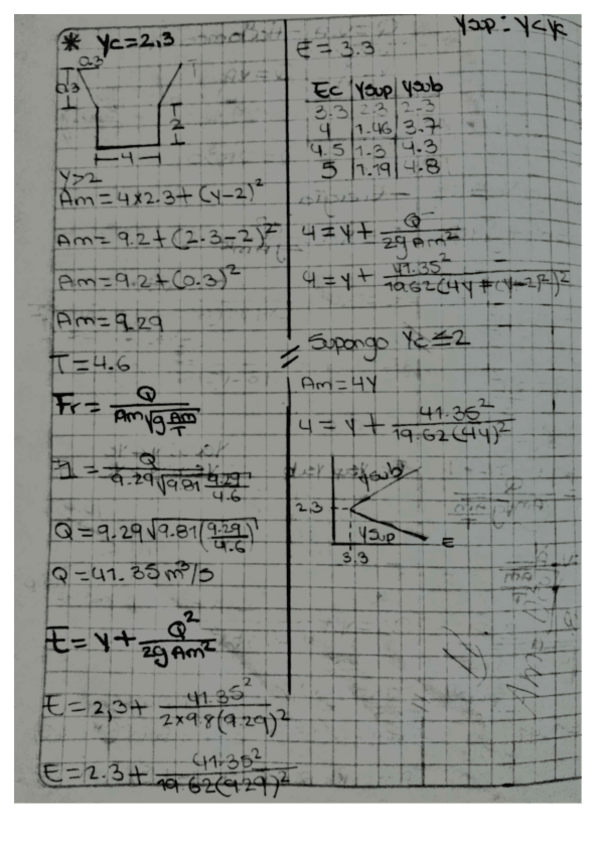 * Yc=2,3
0.3
0.3
2
4
Y>2
Am=4x2.3+(Y-2)²
Am=9.2+(2.3-2)²
Am=9.2+(0.3)²
Am=9.29
T=4.6
Fr= Q / Am√g Am/T
1= Q / 9.29√9.81 9.29/4.6
Q=9.29√9.81(9.29/4.6)
Q=41.35m³/s
E=Y+ Q² / 2g Am²
E=2,3+ 41.35² / 2x9.8(9.29)²
E=2.3+ 41.35² / 19.62(9.29)²
Ysup: Y<Yc
E=3.3
Ec Ysup Ysub
3.3 2.3 2.3
4 1.46 3.7
4.5 1.3 4.3
5 1.19 4.8
4=Y+ Q / 2g Am²
4=Y+ 41.35² / 19.62(4Y+(Y-2)²)²
// Supongo Yc≤2
Am=4Y
4=Y+ 41.35² / 19.62(4Y)²
Ysub
2,3
Ysup
E
3.3